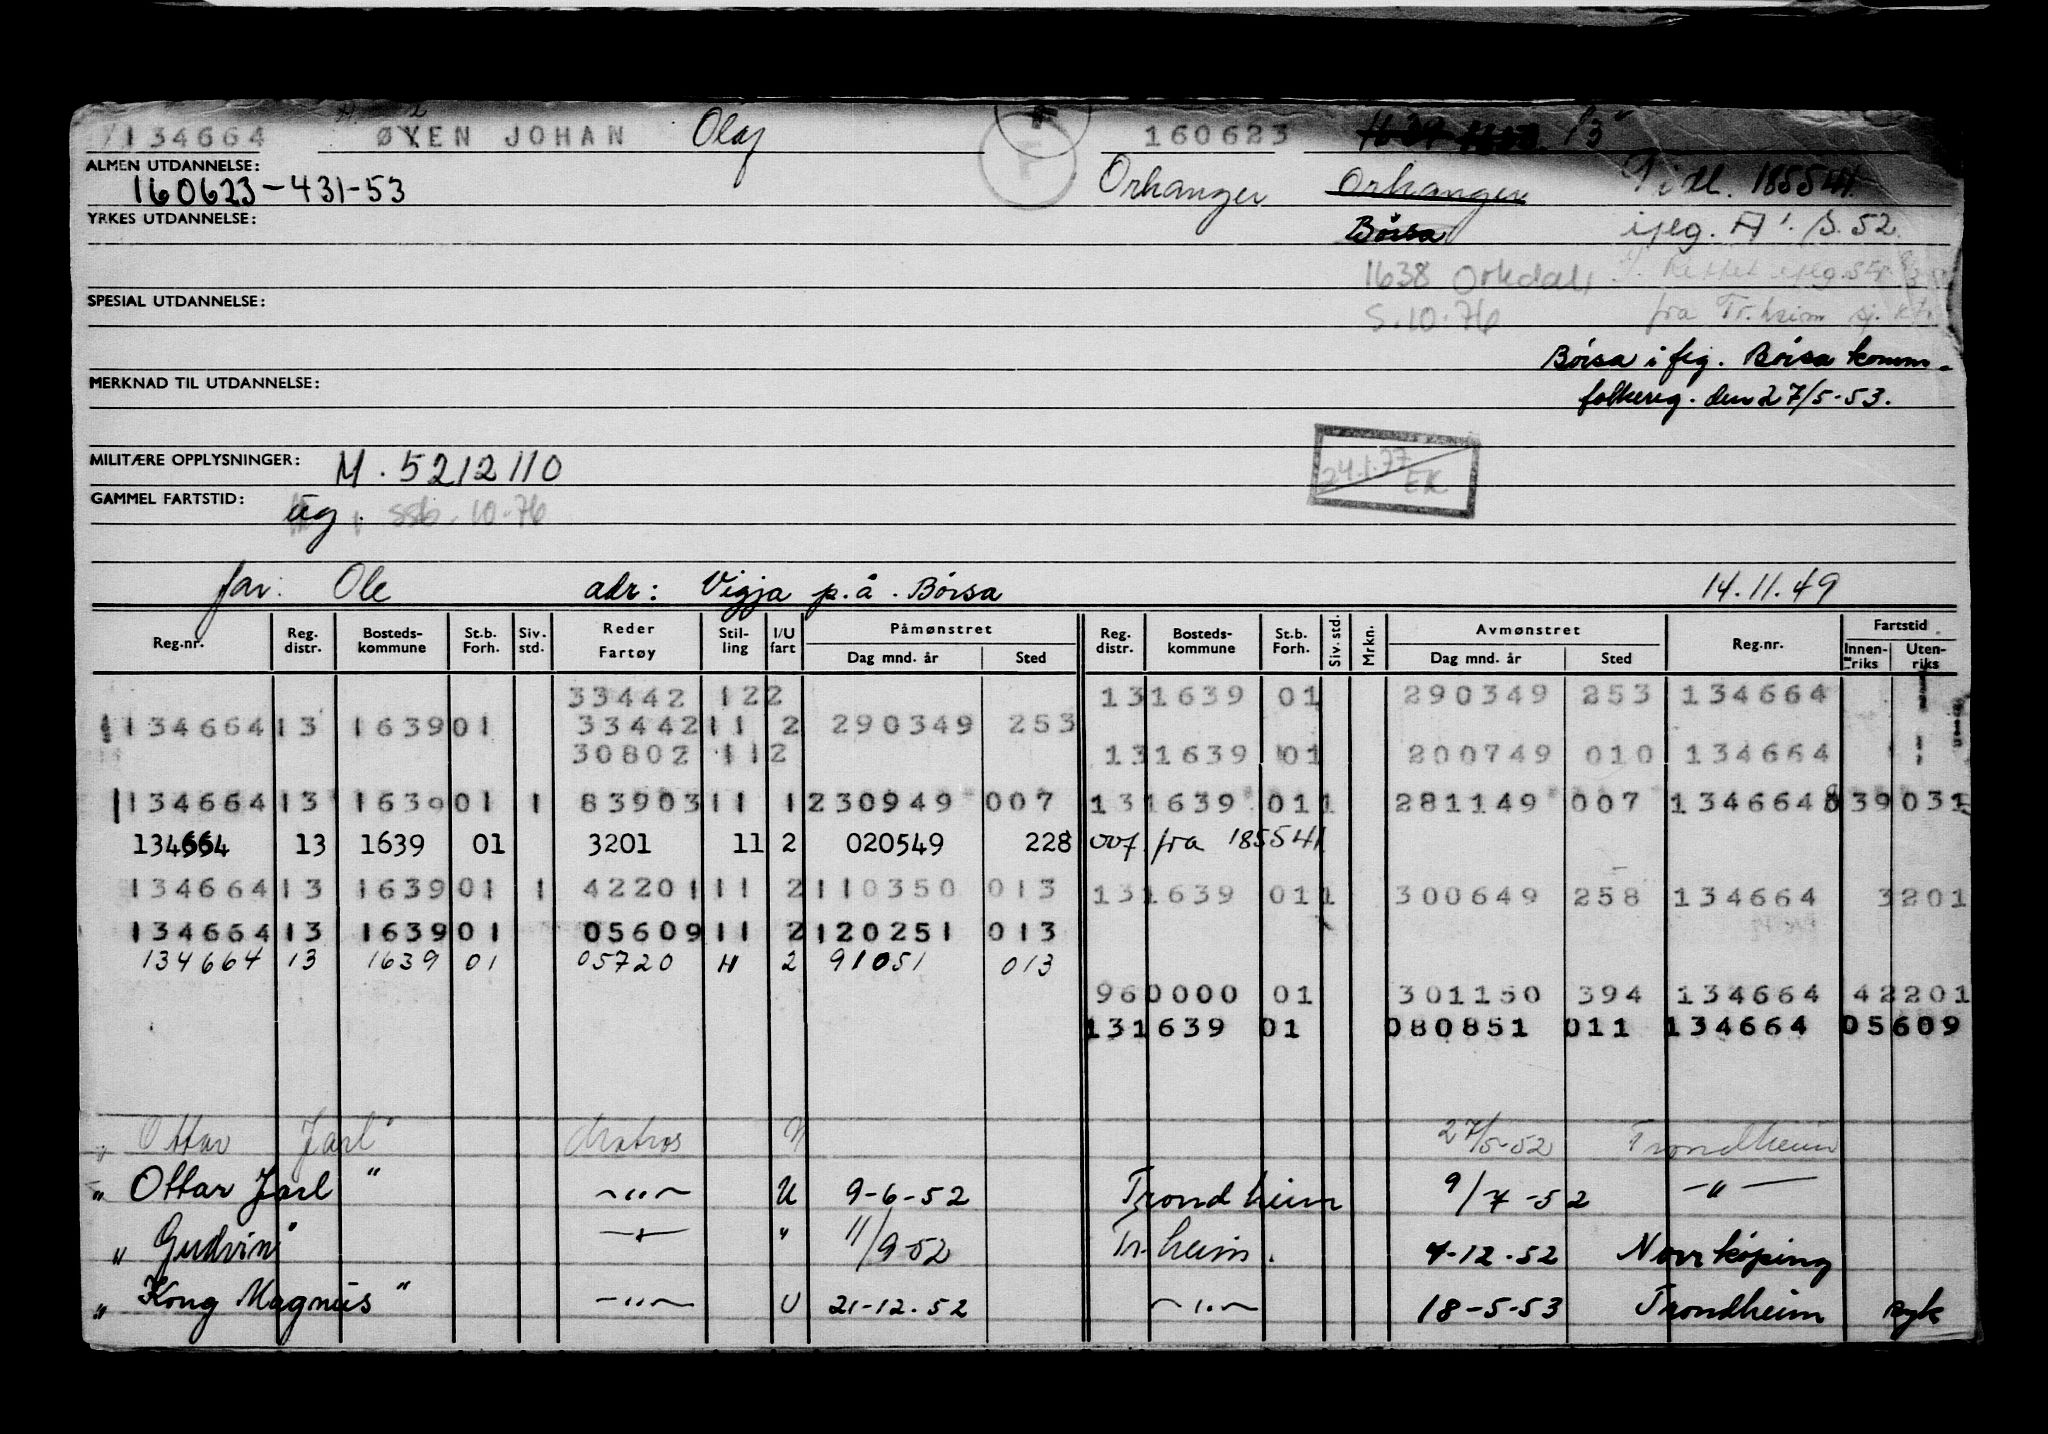 134664 ØYEN JOHAN Olaf 160623
ALMEN UTDANNELSE: Orkanger Orkanger Tidl. 185541.
160623-431-53
YRKES UTDANNELSE: Børsa
1638 Orkdal,
SPESIAL UTDANNELSE: 5.10.76 fra Tr.heim sj. kt.
Børsa i flg. Børsa komm.
MERKNAD TIL UTDANNELSE: folkereg. den 27/5-53.
MILITÆRE OPPLYSNINGER: M. 5212110 24.1.77 EK
GAMMEL FARTSTID: ssb. 10-76
far: Ole adr: Viggja p.å. Børsa 14.11.49
Reg.nr. Reg. distr. Bosteds- kommune St.b. Forh. Siv. std. Reder Fartøy Stil- ling I/U fart Påmønstret Dag mnd. år Sted Reg. distr. Bosteds- kommune St.b. Forh. Siv. std. Mrkn. Avmønstret Dag mnd. år Sted Reg.nr. Fartstid Innen- riks Uten- riks
33442 122 131639 01 290349 253 134664
134664 13 1639 01 33442 11 2 290349 253
30802 112 131639 01 200749 010 134664
134664 13 1639 01 1 83903 11 1 230949 007 131639 01 1 281149 007 134664 83903
134664 13 1639 01 3201 11 2 020549 228 fra 185541
134664 13 1639 01 1 42201 11 2 110350 013 131639 01 1 300649 258 134664 3201
134664 13 1639 01 05609 11 2 120251 013
134664 13 1639 01 05720 11 2 91051 013
960000 01 301150 394 134664 42201
131639 01 080851 011 134664 05609
„ Ottar Jarl" Matros 27/5-52 Trondheim
„ Ottar Jarl " —"— U 9-6-52 Trondheim 9/7-52 —"—
„ Gudvin" —"— " 11/9-52 Tr.heim. 4-12-52 Norrköping
„ Kong Magnus " —"— U 21-12-52 —"— 18-5-53 Trondheim